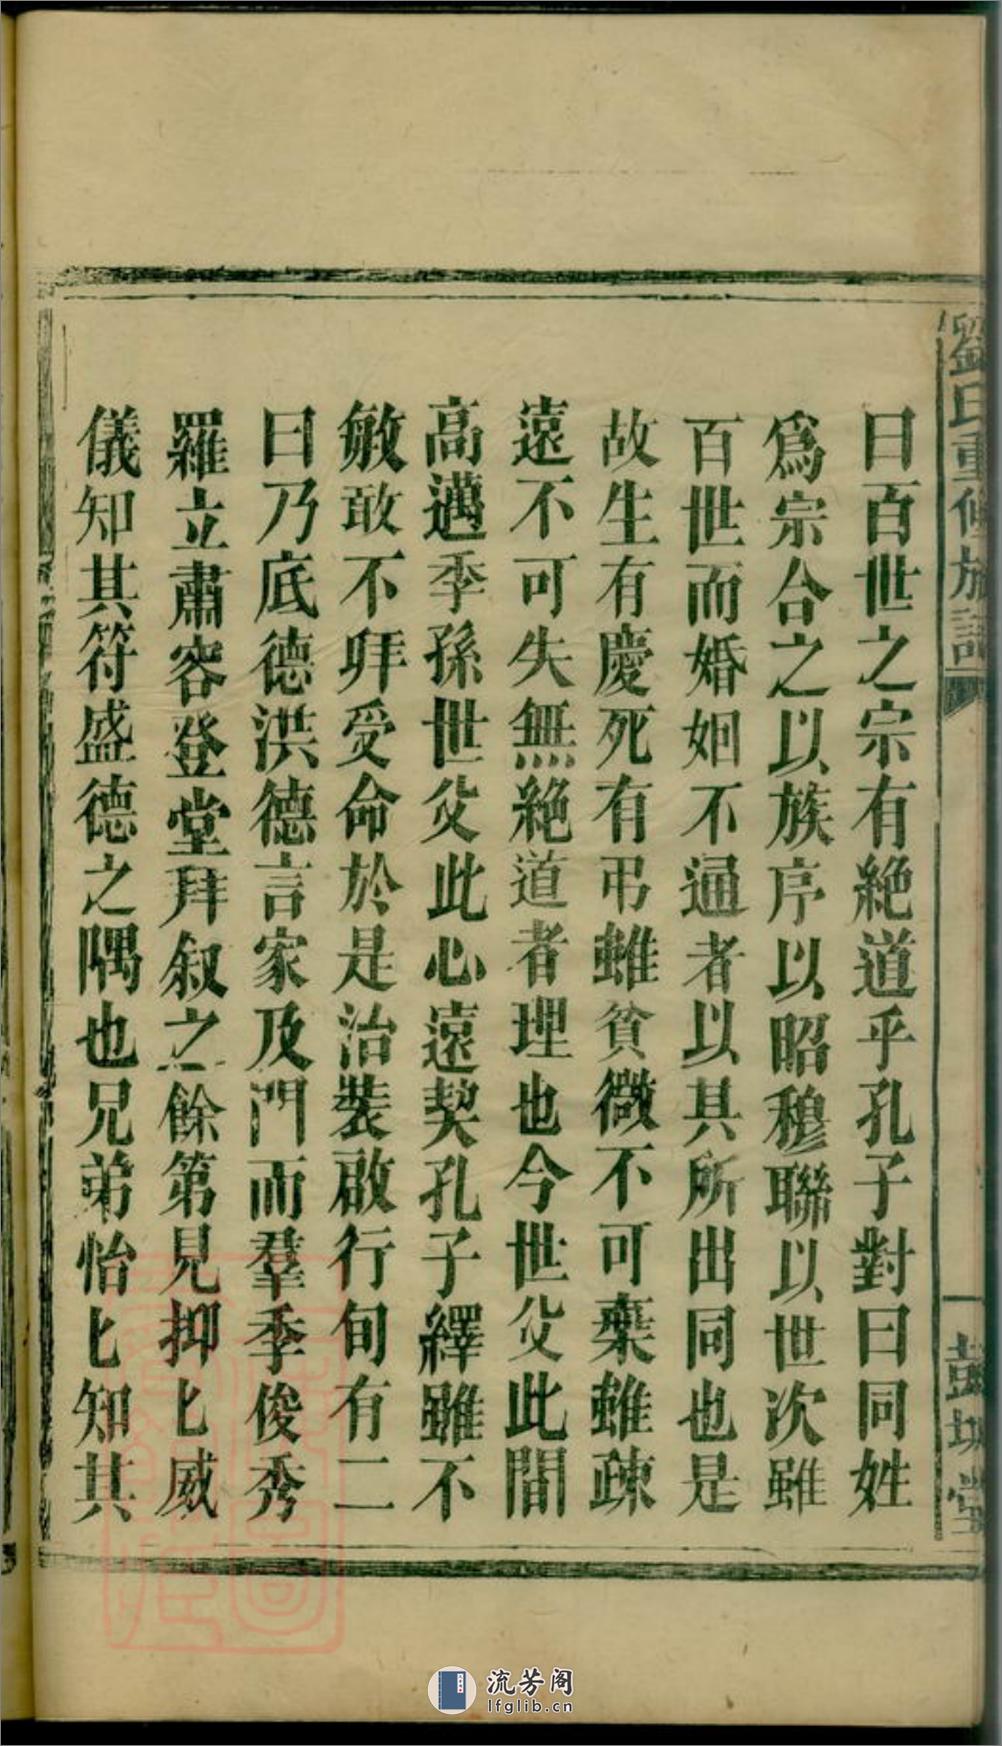 劉氏重修族譜
一
彭城堂
曰百世之宗有絕道乎孔子對曰同姓
爲宗合之以族序以昭穆聯以世次雖
百世而婚姻不通者以其所出同也是
故生有慶死有弔雖貧微不可棄雖疎
遠不可失無絕道者理也今世父此間
高邁季孫世父此心遠契孔子繹雖不
敏敢不拜受命於是治裝啟行旬有二
日乃底德洪德言家及門而羣季俊秀
羅立肅容登堂拜叙之餘第見抑匕威
儀知其符盛德之隅也兄弟怡匕知其
流芳阁
lfglib.cn